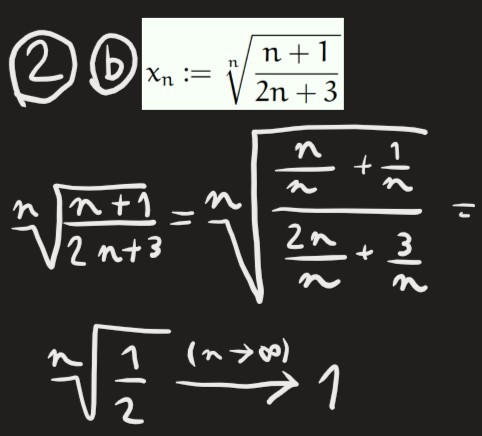 2 b xₙ := ⁿ√((n + 1)/(2n + 3))
ⁿ√((n+1)/(2n+3)) = ⁿ√((n/n + 1/n)/(2n/n + 3/n)) =
ⁿ√(1/2) (n→∞)⟶ 1